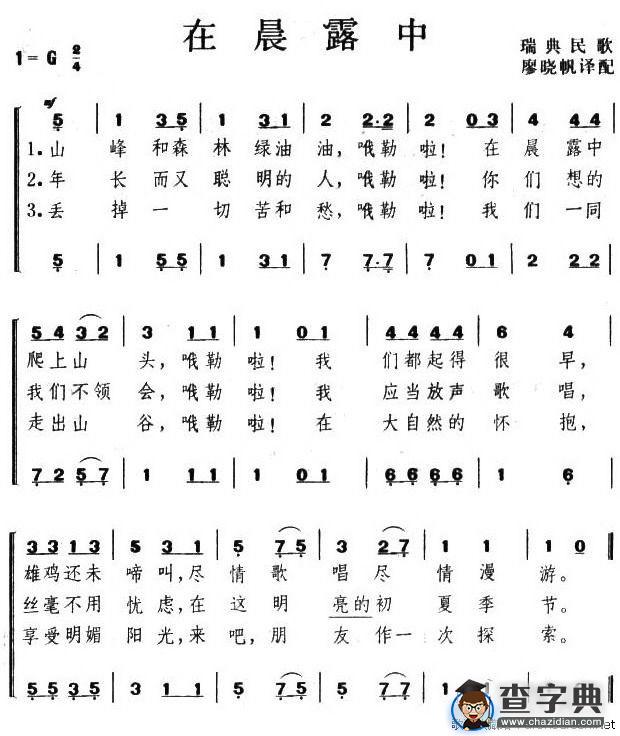 在晨露中
1=G 2/4
瑞典民歌
廖晓帆译配
mf
5 | 1 35 | 1 31 | 2 2·2 | 2 03 | 4 44 |
1.山 峰 和森 林 绿油 油，哦勒 啦！ 在 晨 露中
2.年 长 而又 聪 明的 人，哦勒 啦！ 你 们 想的
3.丢 掉 一 切 苦和 愁，哦勒 啦！ 我 们 一同
5 | 1 55 | 1 31 | 7 7·7 | 7 01 | 2 22 |
54 32 | 3 11 | 1 01 | 44 44 | 6 4 |
爬上山 头，哦勒 啦！ 我 们都起得 很 早，
我们不领 会，哦勒 啦！ 我 应当放声 歌 唱，
走出山 谷，哦勒 啦！ 在 大自然的 怀 抱，
72 57 | 1 11 | 1 01 | 66 66 | 1 6 |
33 13 | 5 31 | 5 75 | 3 27 | 1 1 | 10
雄鸡还未 啼叫，尽 情歌 唱尽 情漫 游。
丝毫不用 忧虑，在 这明 亮的初 夏季 节。
享受明媚 阳光，来 吧，朋 友作一 次探 索。
55 35 | 1 11 | 5 55 | 5
查字典
www.chazidian.com